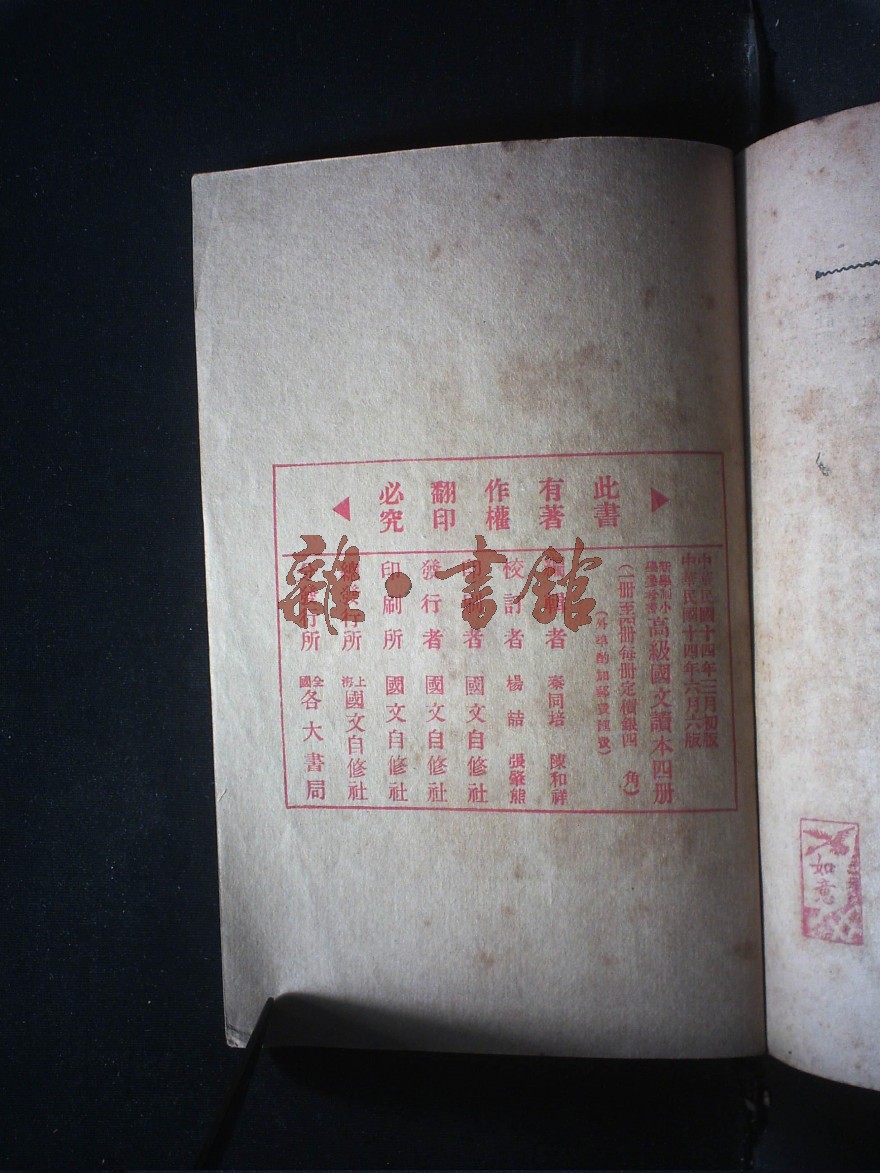 此書有著作權翻印必究
中華民國十四年三月初版
中華民國十四年六月六版
高級國文讀本四册
(一册至四册每册定價銀四角)
(外埠酌加郵費匯費)
編輯者 秦同培 陳和祥
校訂者 楊喆 張肇熊
印刷者 國文自修社
發行者 國文自修社
印刷所 國文自修社
總發行所 上海國文自修社
分發行所 全國各大書局
雜·書館
如意